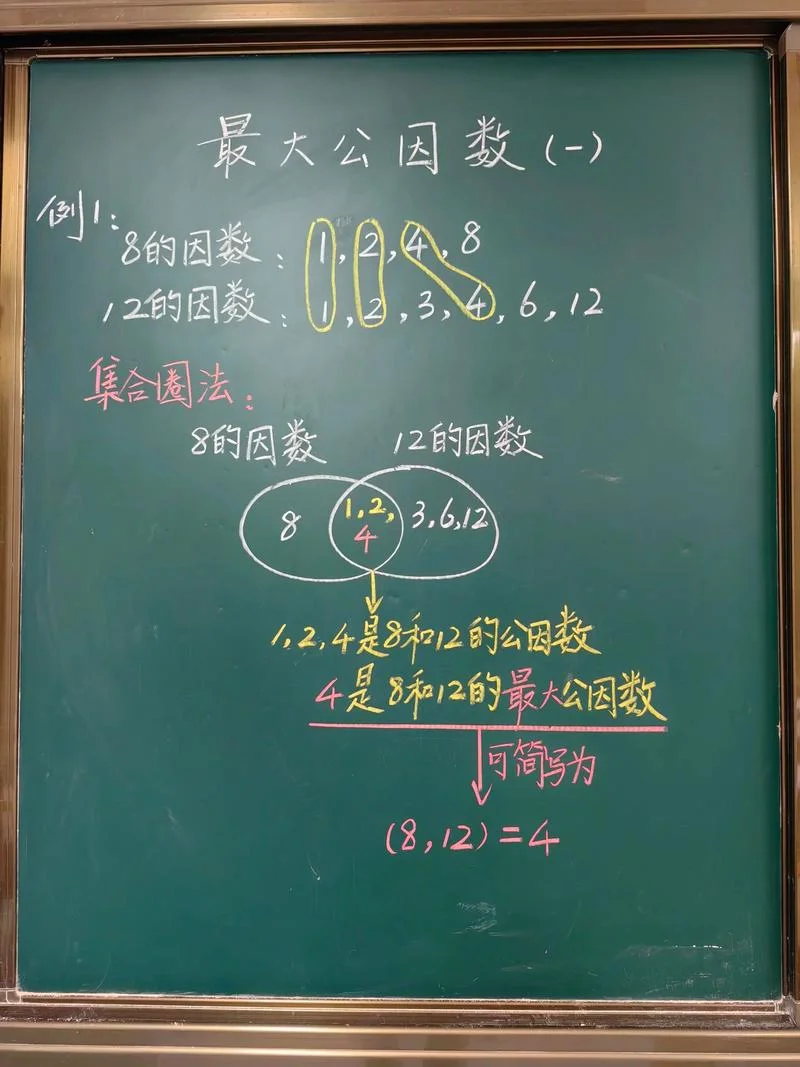 最大公因数(一)
例1:
8的因数: 1, 2, 4, 8
12的因数: 1, 2, 3, 4, 6, 12
集合圈法:
8的因数 12的因数
8 1, 2, 3, 6, 12
4
1, 2, 4是8和12的公因数
4是8和12的最大公因数
可简写为
(8, 12) = 4